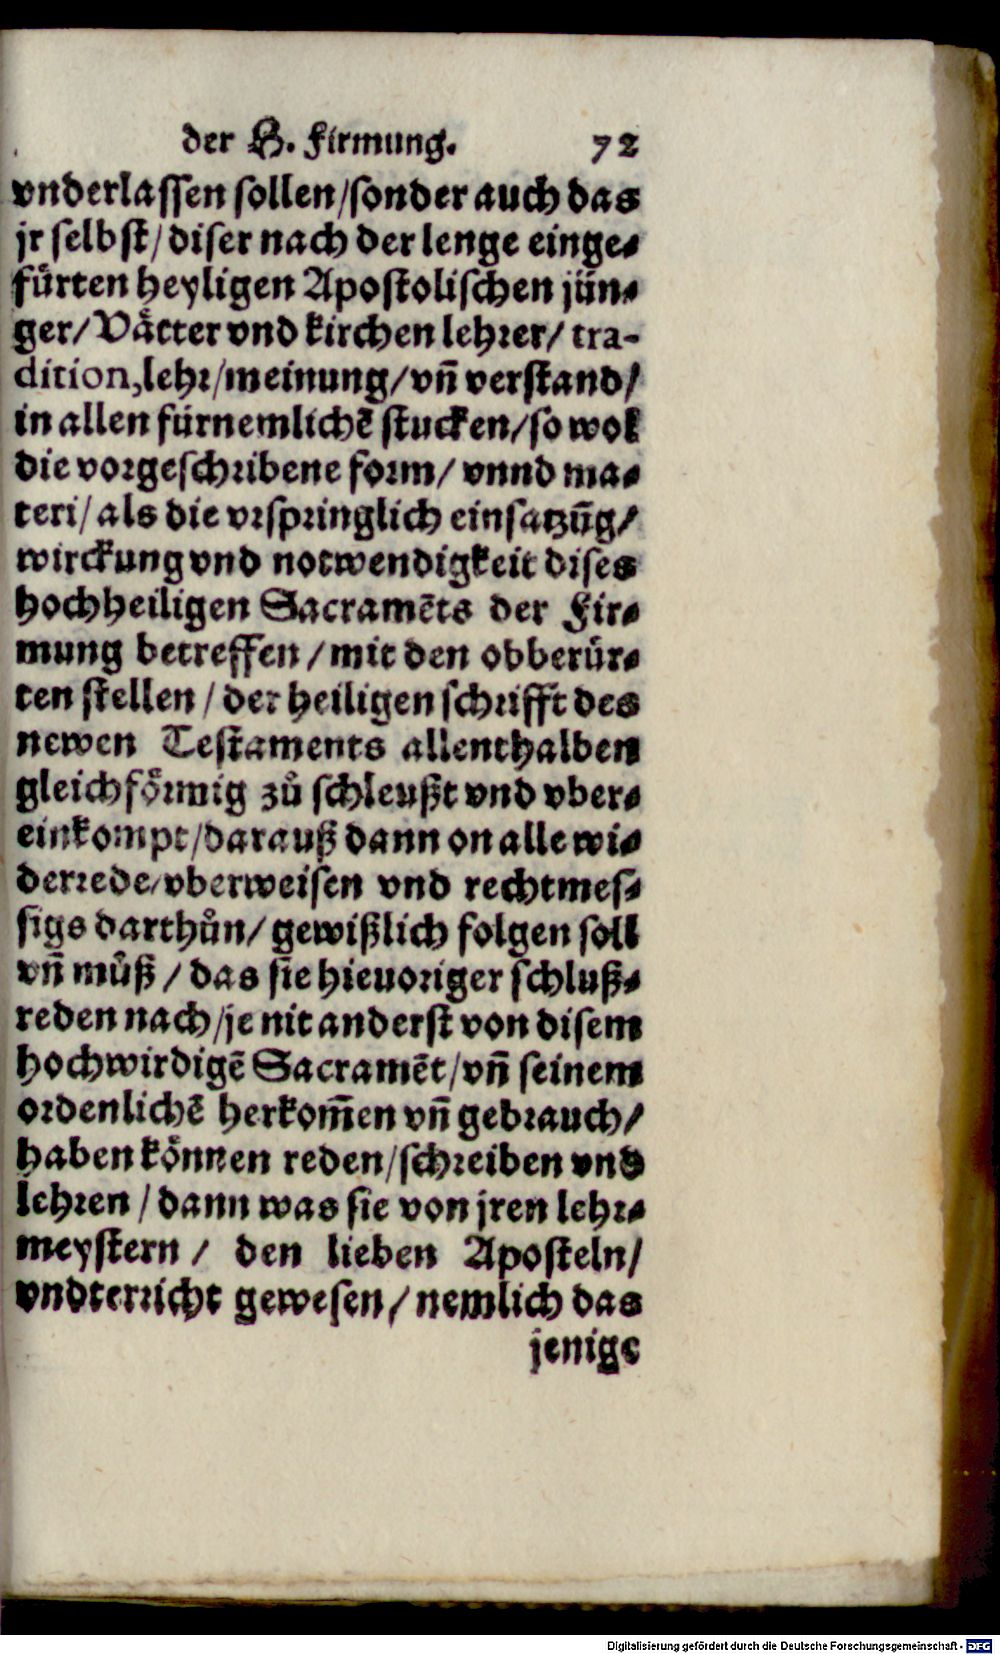 der H. Firmung. 72
vnderlassen sollen/sonder auch das
jr selbst/diser nach der lenge einge-
fuͤrten heyligen Apostolischen jün-
ger/Vaͤtter vnd kirchen lehrer/ tra-
dition, lehr/meinung/vn̄ verstand/
in allen fürnemlichē stucken/so wol
die vorgeschribene form/ vnnd ma-
teri/als die vrspringlich einsatzūg/
wirckung vnd notwendigkeit dises
hochheiligen Sacramēts der Fir-
mung betreffen/mit den obberür-
ten stellen/der heiligen schrifft des
newen Testaments allenthalben
gleichfoͤrmig zuͦ schleußt vnd vber-
einkompt/darauß dann on alle wi-
derrede/vberweisen vnd rechtmes-
sigs darthuͦn/ gewißlich folgen soll
vn̄ muͦß/das sie hieuoriger schluß-
reden nach/je nit anderst von disem
hochwirdigē Sacramēt/vn̄ seinem
ordenlichē herkom̄en vn̄ gebrauch/
haben koͤnnen reden/schreiben vnd
lehren/dann was sie von jren lehr-
meystern/ den lieben Aposteln/
vndterricht gewesen/nemlich das
jenige
Digitalisierung gefördert durch die Deutsche Forschungsgemeinschaft - DFG